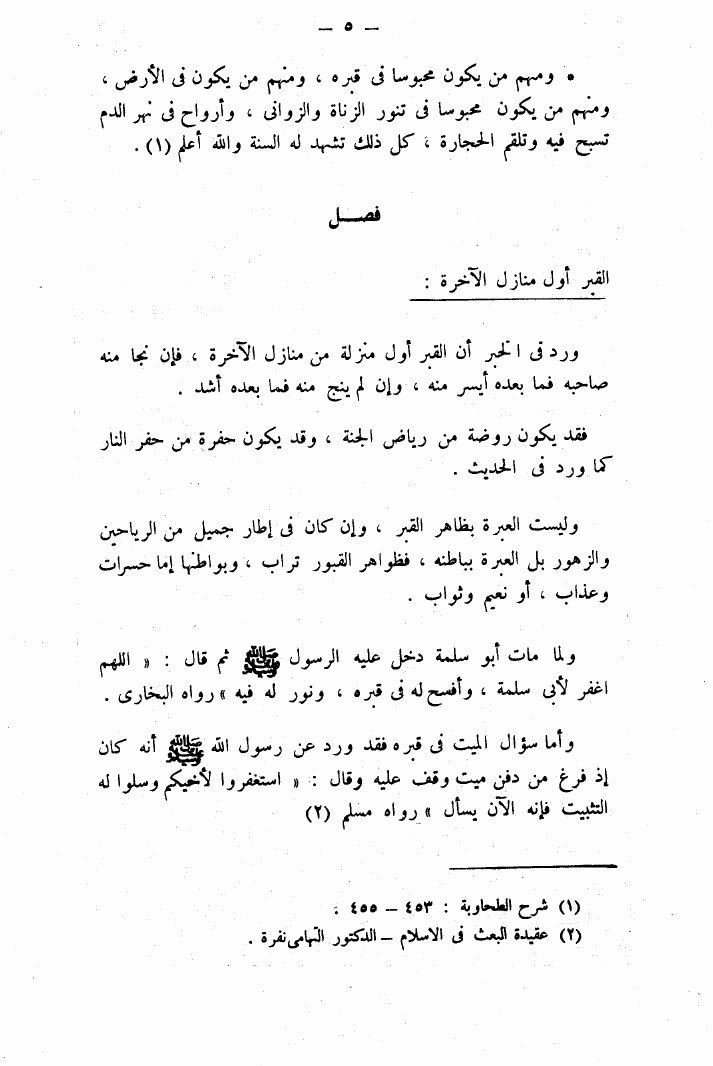 — ٥ —
* ومنهم من يكون محبوسا فى قبره ، ومنهم من يكون فى الأرض ،
ومنهم من يكون محبوسا فى تنور الزناة والزوانى ، وأرواح فى نهر الدم
تسبح فيه وتلقم الحجارة ، كل ذلك تشهد له السنة والله أعلم (١) .
فصـــل
القبر أول منازل الآخرة :
ورد فى الخبر أن القبر أول منزلة من منازل الآخرة ، فإن نجا منه
صاحبه فما بعده أيسر منه ، وإن لم ينج منه فما بعده أشد .
فقد يكون روضة من رياض الجنة ، وقد يكون حفرة من حفر النار
كما ورد فى الحديث .
وليست العبرة بظاهر القبر ، وإن كان فى إطار جميل من الرياحين
والزهور بل العبرة بباطنه ، فظواهر القبور تراب ، وبواطنها إما حسرات
وعذاب ، أو نعيم وثواب .
ولما مات أبو سلمة دخل عليه الرسول ﷺ ثم قال : « اللهم
اغفر لأبى سلمة ، وأفسح له فى قبره ، ونور له فيه » رواه البخارى .
وأما سؤال الميت فى قبره فقد ورد عن رسول الله ﷺ أنه كان
إذ فرغ من دفن ميت وقف عليه وقال : « استغفروا لأخيكم وسلوا له
التثبيت فإنه الآن يسأل » رواه مسلم (٢)
(١) شرح الطحاوية : ٤٥٣ – ٤٥٥ .
(٢) عقيدة البعث فى الاسلام – الدكتور التهامى نفرة .